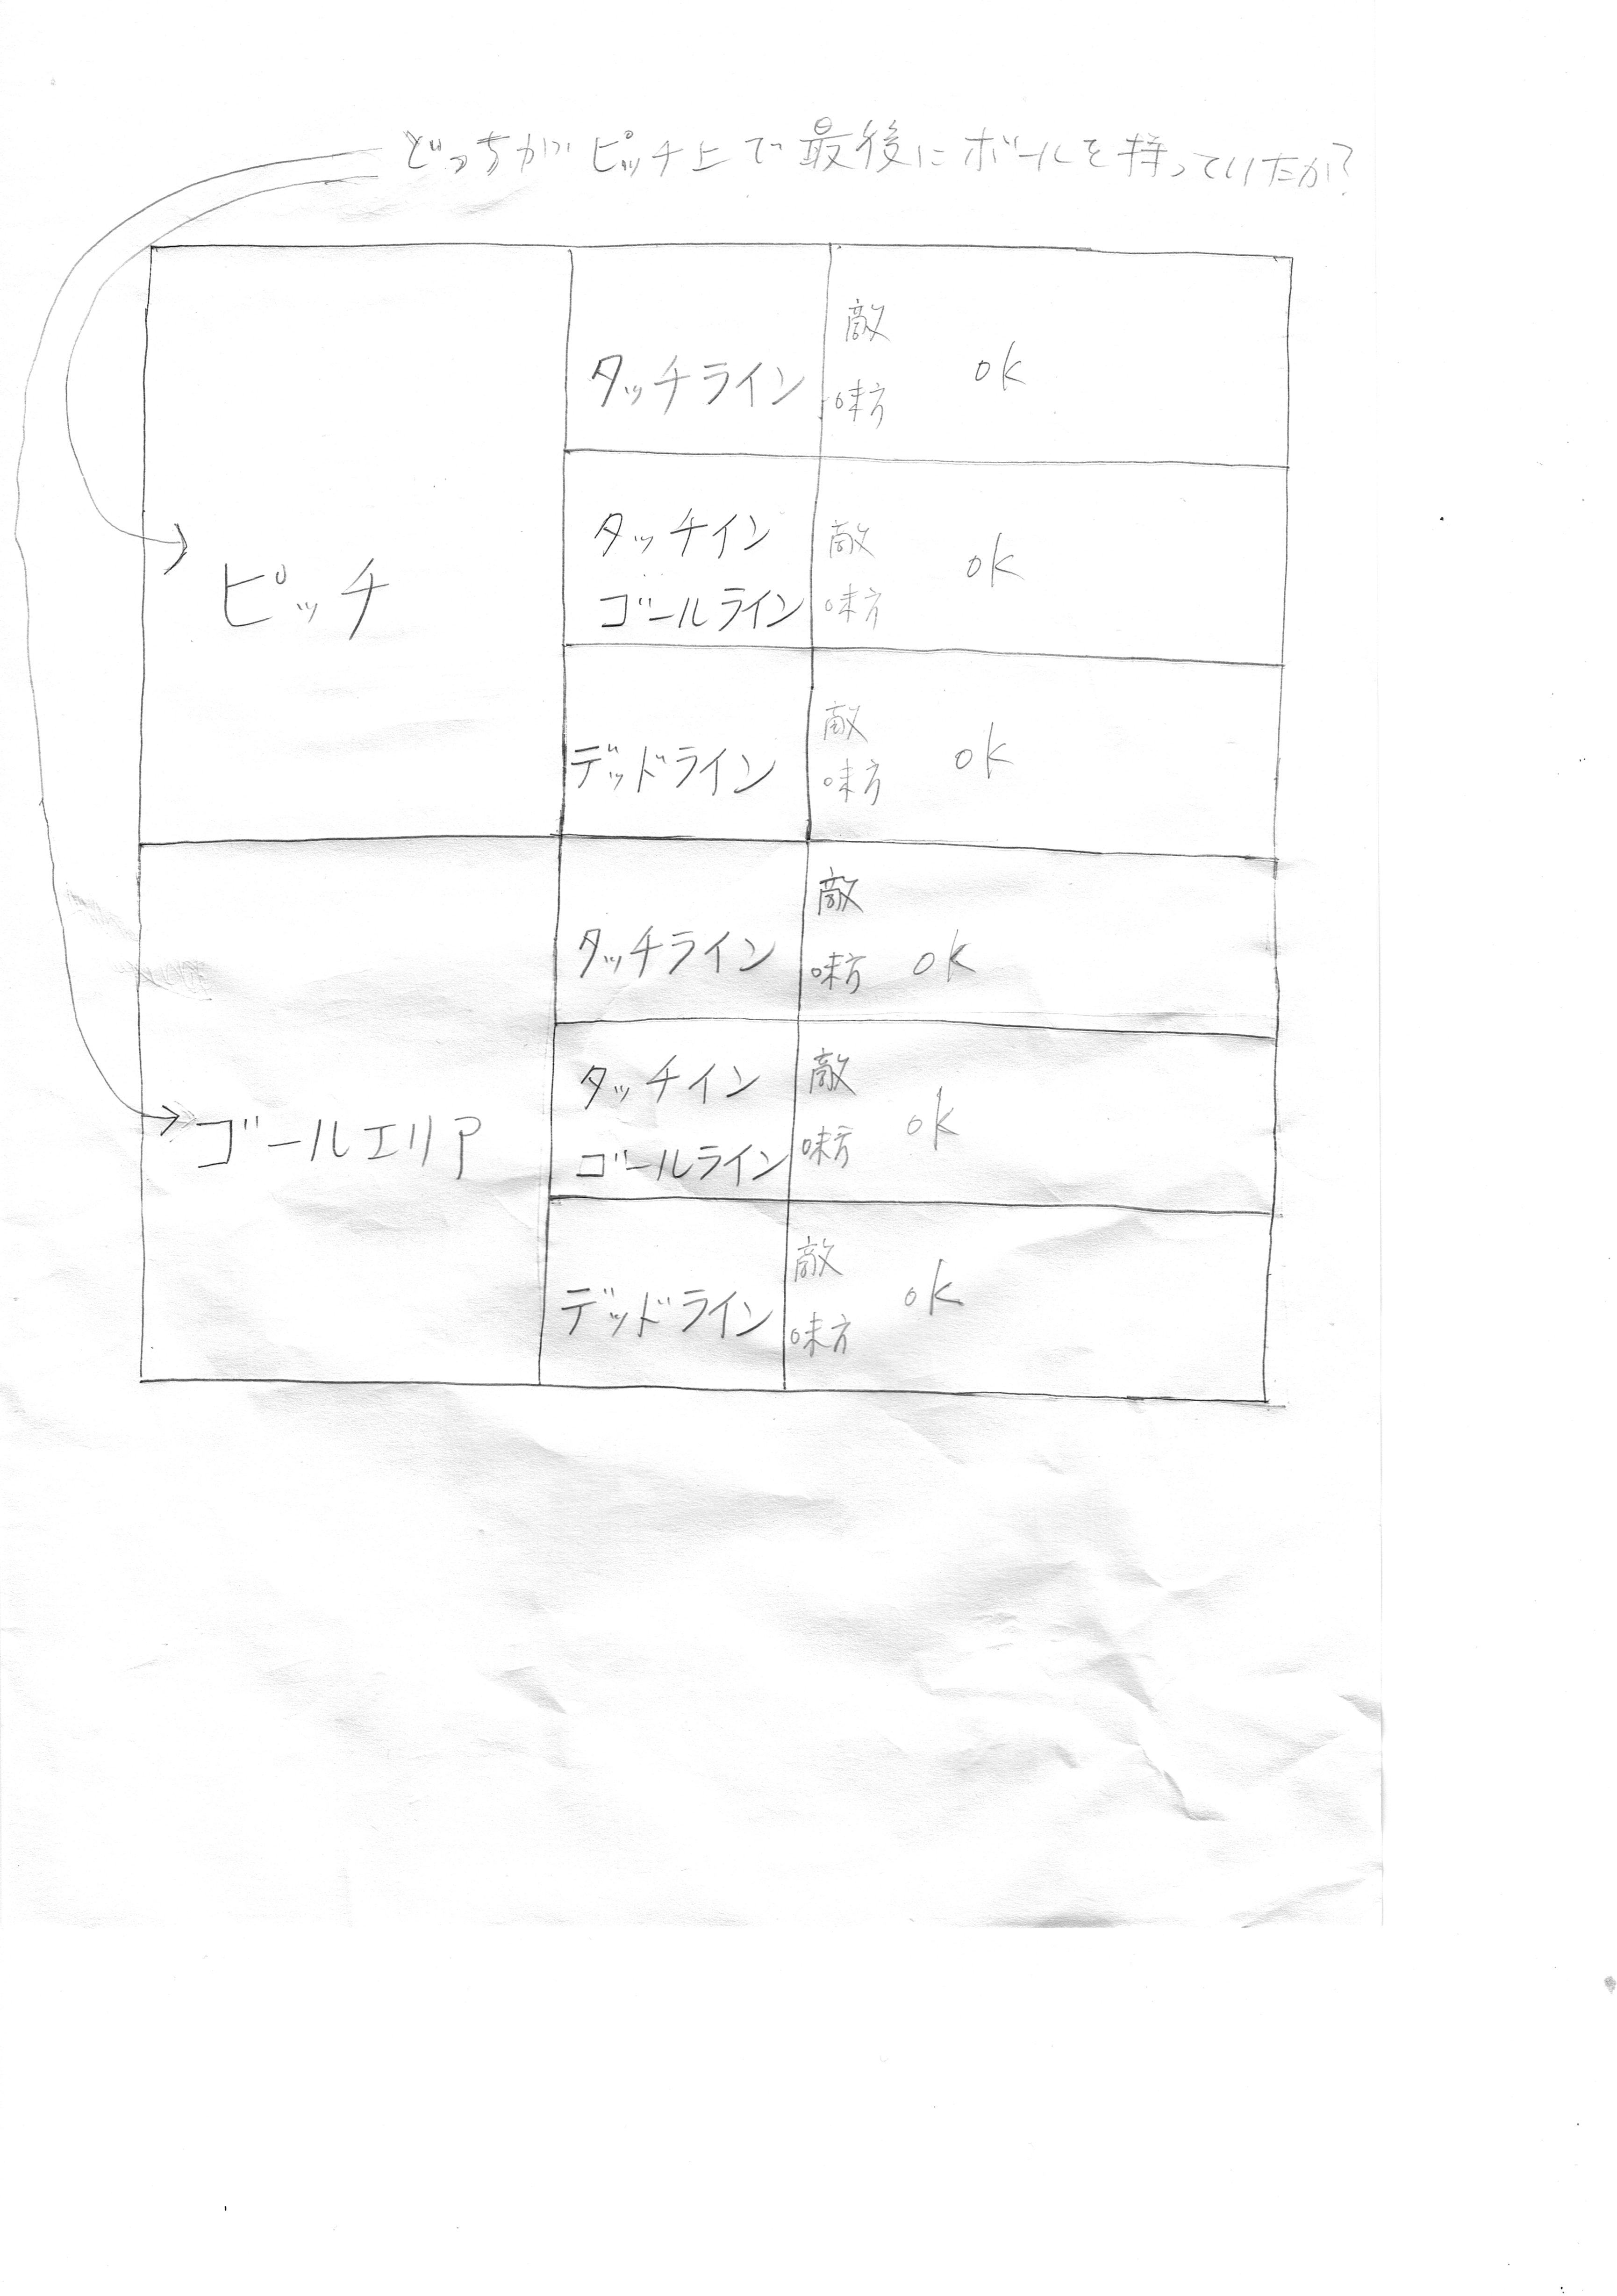 どっちがピッチ上で最後にボールを持っていたか?
ピッチ
タッチライン
敵
味方
ok
タッチイン
ゴールライン
敵
味方
ok
デッドライン
敵
味方
ok
ゴールエリア
タッチライン
敵
味方
ok
タッチイン
ゴールライン
敵
味方
ok
デッドライン
敵
味方
ok